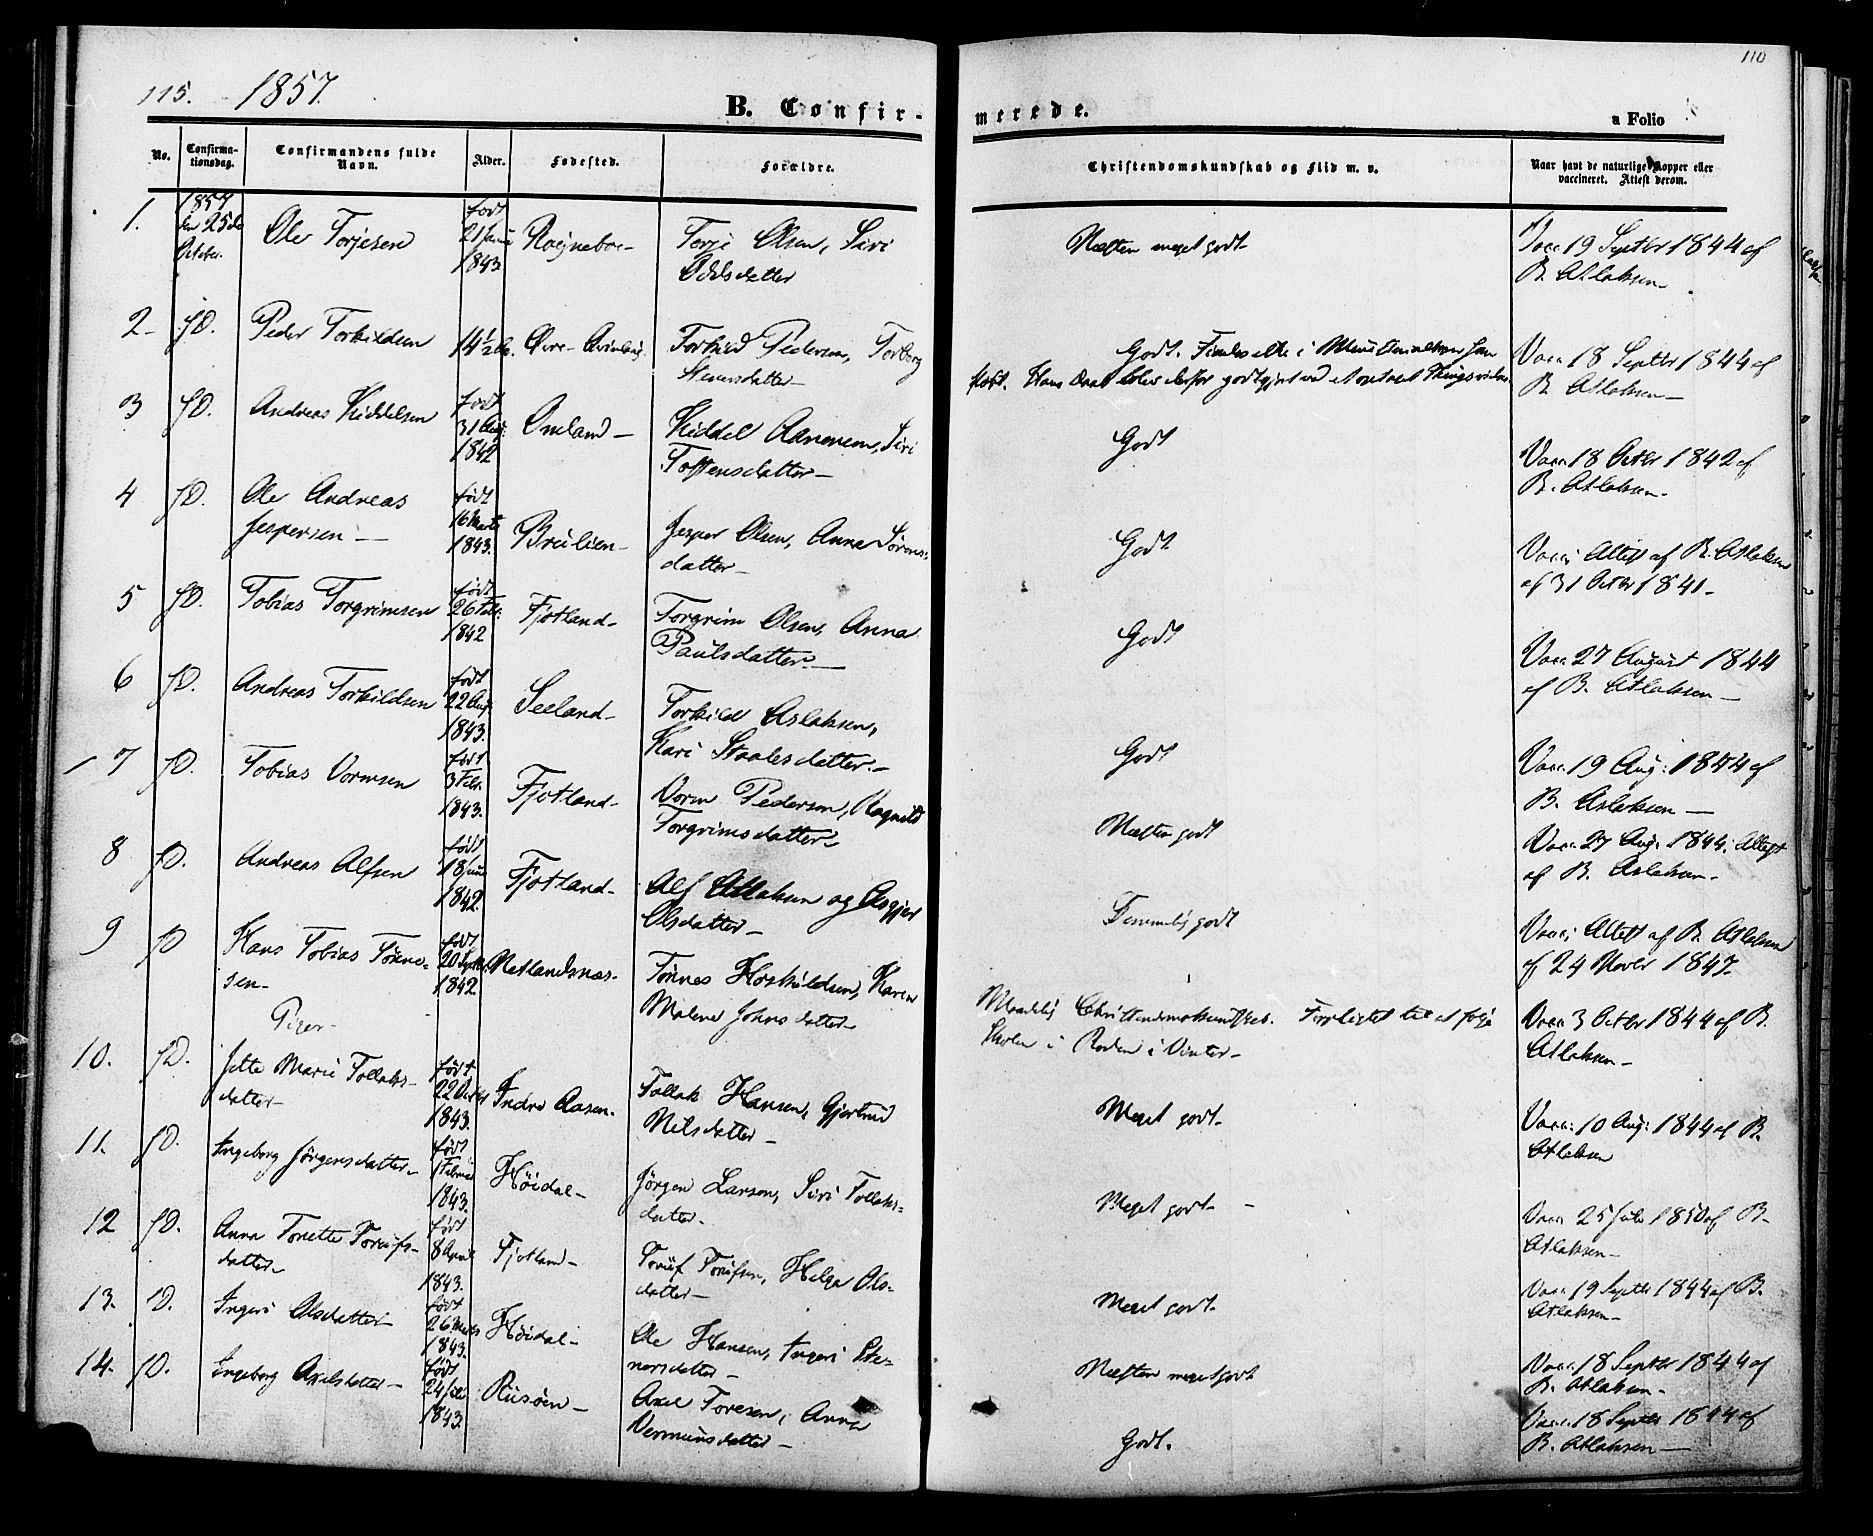 115. 1857.
110
B. Confir-
merede.
a Folio
No.
Confirma-
tionsdag.
Confirmandens fulde
Navn.
Alder.
Fødested.
Forældre.
Christendomskundskab og Flid m. v.
Naar havt de naturlige Kopper eller
vaccineret. Attest derom.
1. 1857 den 25de October. Ole Torjesen født 21 1843. Torje Olsen, Siri
datter
Næsten meget godt
Vacc. 19 Septbr 1844 af
B. Atlaksen
2 - fD. Peder Torkildsen 14½ Torkild Pedersen, Torborg
Stenersdatter
Godt.
Vacc. 18 Septbr 1844 af
B. Atlaksen
3 fD. Andreas Kiddelsen født 31 Aug: 1842 Omland - Kiddel Siri
Tostensdatter
Godt
Vacc. 18 Octbr 1842 af
B. Atlaksen.
4 fD. Ole Andreas
Jespersen - født 16 Marts 1843. Brulien - Jesper Olsen, Anna Sørens-
datter
Godt
Vacc; Attest af B. Atlaksen
af 31 Octbr 1841 -
5 fD. Tobias Torgrimsen født 26 Feb: 1842 Fjotland - Torgrim Olsen, Anna
Paulsdatter -
Godt
Vacc. 27 August 1844
af B. Atlaksen -
6 fD. Andreas Torkildsen født 22 Aug 1843. Seeland - Torkild Aslaksen,
Kari Staalesdatter. -
Godt
Vacc. 19 Aug: 1844 af
B. Aslaksen -
7 fD. Tobias Vormsen født 3 Febr. 1843. Fjotland - Vorm Pedersen, Ragnild
Torgrimsdatter
Næsten godt
Vacc. 27 Aug. 1844. Attest
af B. Aslaksen.
8 fD. Andreas Alfsen født 18 1842. Fjotland - Alf Atlaksen og Asgjerd
Olsdatter -
Temmelig godt
Vacc; Attest af B. Atlaksen
af 24 Novbr 1847.
9 fD Hans Tobias Tønne-
sen - født 20 Septbr 1842 Netlandsnæs. Tønnes Hoskildsen, Karen
Malene Johnsdatter
Maadelig Christendomskundskab. Forpligtet til at følge
Skolen i Roden i Vinter -
Vacc. 3 Octbr 1844 af B.
Atlaksen -
Piger -
10. fD. Jette Marie Tollaks-
datter - født 22 1843. Indre Aasen. Tollak Hansen, Gjertrud
Nilsdatter -
Meget godt.
Vacc: 10 Aug: 1844 af B.
Atlaksen
11. fD. Ingeborg Jørgensdatter født 1 Februar 1843. Høidal - Jørgen Larsen, Siri Tollaks-
datter.
Meget godt. -
Vacc. 25 Juli 1850 af B.
Atlaksen -
12 fD. Anna Tonette Torufs-
datter født 8 April 1843. Fjotland - Toruf Torufsen, Helga Ols-
datter -
Meget godt.
Vacc. 19 Septbr 1844 af B.
Atlaksen -
13. D. Ingeri Olsdatter født 26 Marts 1843. Høidal - Ole Hansen, Ingeri Ste-
nersdatter -
Næsten meget godt
Vacc. 18 Septbr 1844 af
B. Atlaksen -
14. fD. Ingeborg Axelsdatter - født 24 Juli 1843. Risøen - Axel Toresen, Anna
Vermunsdatter -
Godt.
Vacc. 18 Septbr 1844 af
B. Atlaksen -